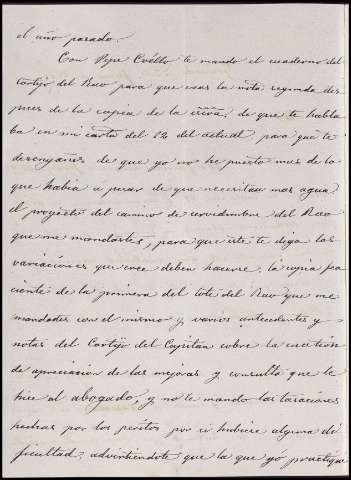 el año pasado.
Con Pepe Cuéllo te mando el cuaderno del
Cortijo del Raso para que veas la nota segunda des
pues de la copia de la de que te habla
ba en mi carta del 22 del actual para que te
desengañes de que yo no he puesto mas de lo
que habia a pesar de que necesitan mas agua;
el proyecto del camino de servidumbre del Raso
que me mandastes, para que este te diga las
variaciones que cree deben hacerse, la copia fea
ciente de la primera del lote del Raso que me
mandastes con el mismo y varios antecedentes y
notas del Cortijo del Capitan sobre la cuestion
de apreciacion de las mejoras y consulta que le
hice al abogado, y no te mando las tasaciones
hechas por los peritos por si hubiere alguna di
ficultad; advirtiéndote que la que yo practiqué